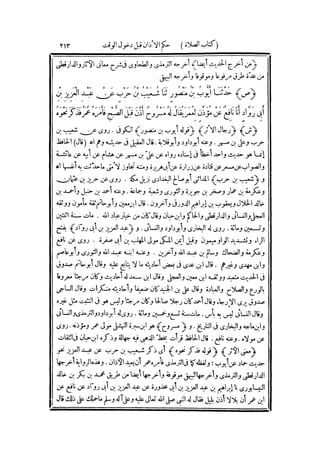 (كتاب الصلاة) حكم الاذان قبل دخول الوقت ٢١٣
﴿من أخرج الحديث أيضا﴾ أخرجه الترمذى والطحاوى فى شرح معانى الآثار والدارقطنى
من عدة طرق مرفوعا وموقوفا وأخرجه البيهقى
﴿ص﴾ حَدَّثَنَا أَيُّوبُ بْنُ مَنْصُورٍ ثَنَا شُعَيْبُ بْنُ حَرْبٍ عَنْ عَبْدِ الْعَزِيزِ بْنِ
أَبِى رَوَّادٍ أَنَا نَافِعٌ عَنْ مُؤَذِّنٍ لِعُمَرَ يُقَالُ لَهُ مَسْرُوحٌ أَذَّنَ قَبْلَ الصُّبْحِ فَأَمَرَهُ عُمَرُ فَذَكَرَ نَحْوَهُ
﴿ش﴾ ﴿رجال الأثر﴾ ﴿قوله أيوب بن منصور﴾ الكوفى. روى عن شعيب بن
حرب وعلى بن مسهر. وعنه أبو داود وأبو قلابة. قال العقيلى فى حديثه وهم اه ﴿قال﴾ الحافظ
إنما هو حديث واحد أخطأ فى إسناده رواه عن على بن مسهر عن هشام عن أبيه عن عائشة
والصواب عن مسعر عن قتادة عن زرارة عن أبى هريرة ومتنه تجاوز لأمتى ما حدثت به أنفسها اه
و ﴿شعيب بن حرب﴾ المدائنى أبو صالح البغدادى نزيل مكة. روى عن حريز بن عثمان
وعكرمة بن عمار وصخر بن جويرة والثورى وشعبة وجماعة. وعنه أحمد بن حنبل وأحمد بن
خالد الخلال ويعقوب بن إبراهيم الدورقى وآخرون. قال ابن معين وأبو حاتم ثقة مأمون ووثقه
العجلى والنسائى والدارقطنى والحاكم وابن حبان وقال كان من خيار عباد الله. مات سنة اثنتين
وتسعين ومائة. روى له البخارى وأبو داود والنسائى. و ﴿عبد العزيز بن أبى رواد﴾ بفتح
الراء وتشديد الواو ميمون وقيل أيمن المكى مولى المهلب بن أبى صفرة. روى عن نافع
وعكرمة والضحاك وسالم بن عبد الله وآخرين. وعنه ابنه عبد الله والثورى وأبو عاصم
وابن مهدى وغيرهم. قال ابن عدى فى بعض أحاديثه ما لا يتابع عليه وقال أبو حاتم صدوق
فى الحديث متعبد ووثقه ابن معين والعجلى وقال ابن سعد له أحاديث وكان مرجئا معروفا
بالورع والصلاح والعبادة وقال على بن الجنيد كان ضعيفا وأحاديثه منكرات وقال الساجى
صدوق يرى الإرجاء وقال أحمد كان رجلا صالحا وكان مرجئا وليس هو فى التثبت مثل غيره
وقال النسائى ليس به بأس. مات سنة تسع وخمسين ومائة. روى له أبو داود والترمذى والنسائى
وابن ماجه والبخارى فى التاريخ. و ﴿مسروح﴾ هو ابن سبرة النهشلى مولى عمر ومؤذنه. روى
عن مولاه. وعنه نافع. قال الحافظ قرأت بخط الذهبى فيه جهالة وذكره ابن حبان فى الثقات
﴿معنى الأثر﴾ ﴿قوله فذكر نحوه﴾ أى ذكر شعيب بن حرب عن عبد العزيز نحو
حديث حماد عن أيوب. ولفظه كما فى الترمذى فأمره عمر أن يعيد الأذان. وهذه الرواية أخرجها
الدارقطنى والترمذى وأخرجها البيهقى موقوفة وأخرجها أيضا من طريق محمد بن بكر بن خالد
النيسابورى نا إبراهيم بن عبد العزيز بن أبى محذورة عن عبد العزيز بن أبى رواد عن نافع عن
ابن عمر أن بلالا أذن بليل فقال له النبى صلى الله تعالى عليه وعلى آله وسلم ما حملك على ذلك قال